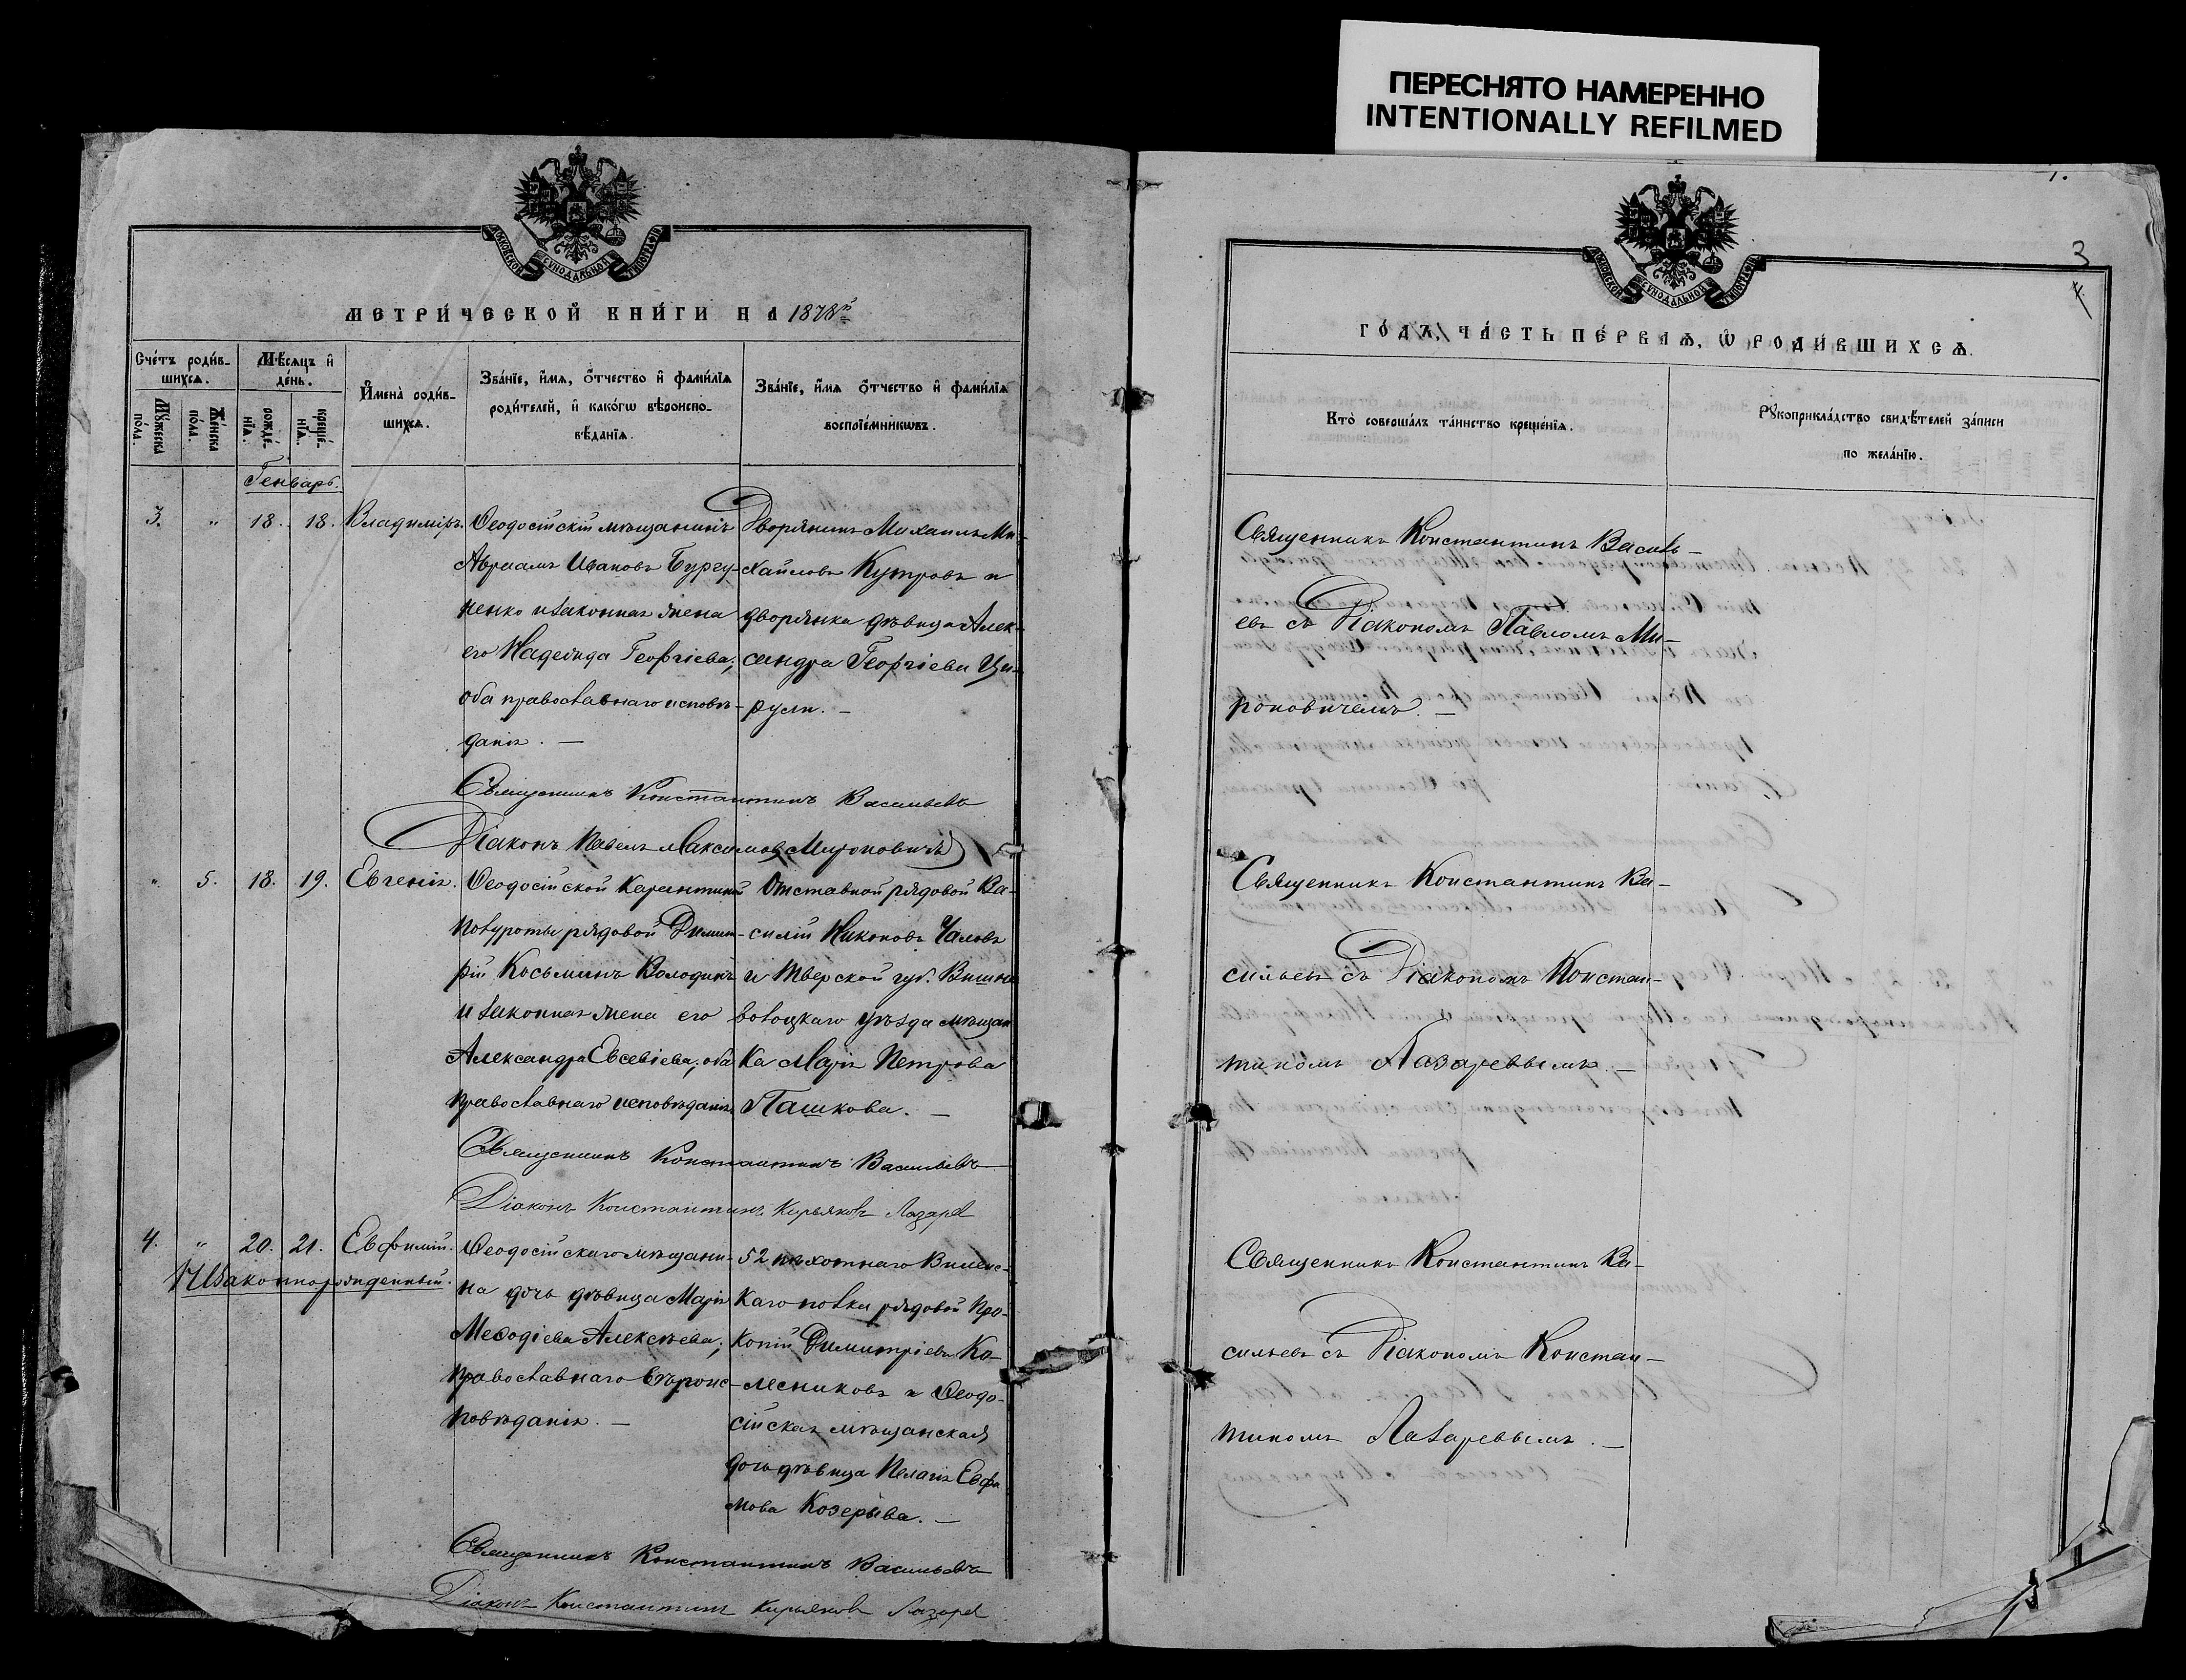 ПЕРЕСНЯТО НАМЕРЕННО
INTENTIONALLY REFILMED
МОСКОВСКОЙ СѴНОДАЛЬНОЙ ТИПОГРАФІИ
МЕТРИ́ЧЕСКОЙ КНИ́ГИ НА 1878й
Сче́тъ роди́в-
шихсѧ.
Мꙋ́жеска по́ла.
Же́нска по́ла.
Мѣ́сяцъ и҆ де́нь.
рожде́-
нїѧ.
креще́-
нїѧ.
И҆мена̀ роди́в-
шихсѧ.
Зва́нїе, и҆́мѧ, ѻ҆́тчество и҆ фами́лїѧ
роди́телей, и҆ како́гѡ вѣроиспо-
вѣ́данїѧ.
Зва́нїе, и҆́мѧ ѻ҆́тчество и҆ фами́лїѧ
воспрїе́мникѡвъ.
Генварь.
3. " 18. 18. Владиміръ.
Ѳеодосійскій мѣщанинъ
Авраамъ Ивановъ Бургу-
ненко и законная жена
его Надежда Георгіева;
оба православнаго исповѣ-
данія. —
Дворянинъ Михаилъ Ми-
хайловъ Кутровъ и
дворянка дѣвица Алек-
сандра Георгіева Ци-
рули. —
Священникъ Константинъ Васильевъ
Діаконъ Павелъ Максимовъ Мироновичъ
" 5. 18. 19. Евгенія.
Ѳеодосійской Карантинной
полуроты рядовой Димит-
рій Косьминъ Володинъ
и законная жена его
Александра Евсевіева; оба
православнаго исповѣданія.
Отставной рядовой Ва-
силій Никоновъ Чаловъ
и Тверской губ. Вышне-
волоцкаго уѣзда мѣщан-
ка Марія Петрова
Пашкова. —
Священникъ Константинъ Васильевъ
Діаконъ Константинъ Кирьяковъ Лазарев
4. " 20. 21. Евфимій.
Незаконнорожденный.
Ѳеодосійскаго мѣщани-
на дочь дѣвица Марія
Меѳодіева Алексѣева;
православнаго вѣроис-
повѣданія. —
52 пѣхотнаго Виленс-
каго полка рядовой Про-
копій Димитріевъ Ко-
лесниковъ и Ѳеодо-
сійская мѣщанская
дочь дѣвица Пелагія Евфи-
мова Козерыва. —
Священникъ Константинъ Васильевъ
Діаконъ Константинъ Кирьяковъ Лазарев
3
МОСКОВСКОЙ СѴНОДАЛЬНОЙ ТИПОГРАФІИ
ГО́ДЪ, ЧА́СТЬ ПЕ́РВАѦ, Ѡ҆ РОДИ́ВШИХСѦ.
Кто̀ соверша́лъ та́инство креще́нїѧ.
Рꙋкоприкла́дство свидѣ́телей за́писи
по жела́нїю.
Священникъ Константинъ Василь-
евъ съ Діакономъ Павломъ Ми-
роновичемъ. —
Священникъ Константинъ Ва-
сильевъ съ Діакономъ Констан-
тиномъ Лазаревымъ. —
Священникъ Константинъ Ва-
сильевъ съ Діакономъ Констан-
тиномъ Лазаревымъ. —